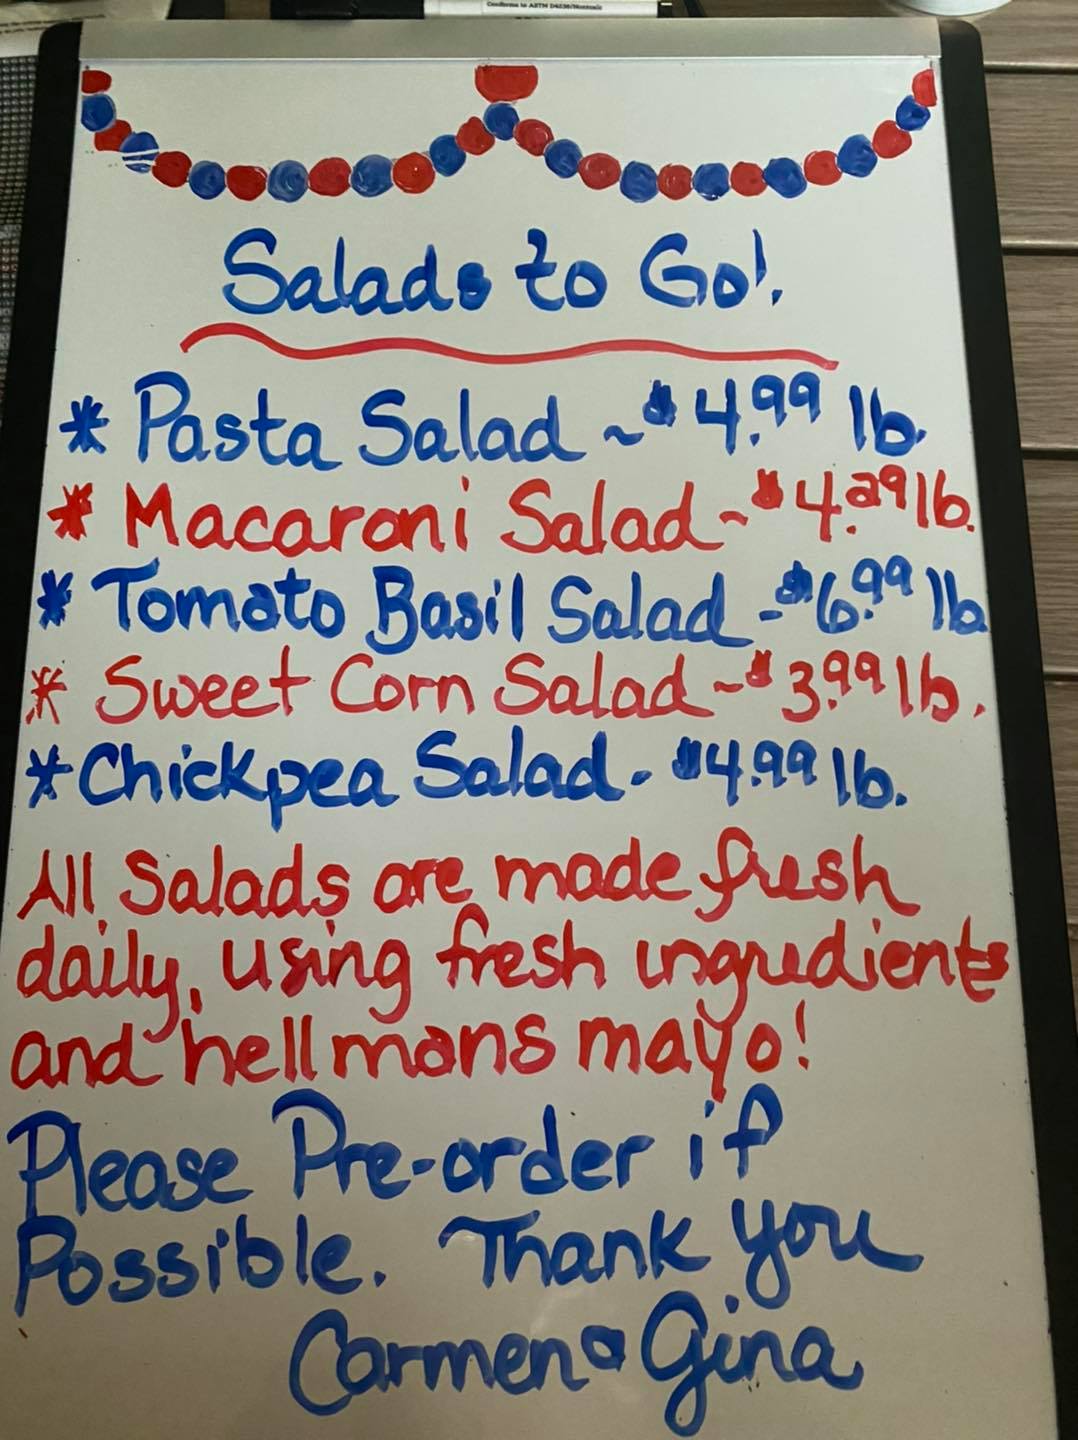 Conforms to ASTM D4236/Nontoxic
Salads to Go!.
* Pasta Salad ~ $4.99 lb.
* Macaroni Salad ~ $4.29 lb.
* Tomato Basil Salad - $6.99 lb.
* Sweet Corn Salad ~ $3.99 lb.
* Chickpea Salad - $4.99 lb.
All Salads are made fresh
daily, using fresh ingredients
and hellmans mayo!
Please Pre-order if
Possible. Thank you
Carmen & Gina